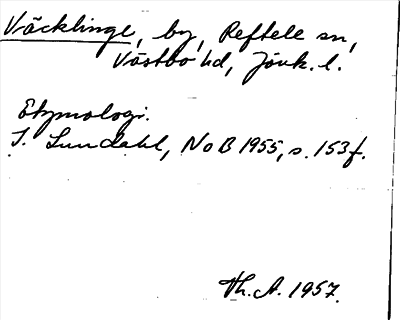 Väcklinge, by, Reftele sn,
Västbo hd, Jönk. l.
Etymologi.
I. Lundahl, NoB 1955, s. 153 f.
Th. A. 1957.